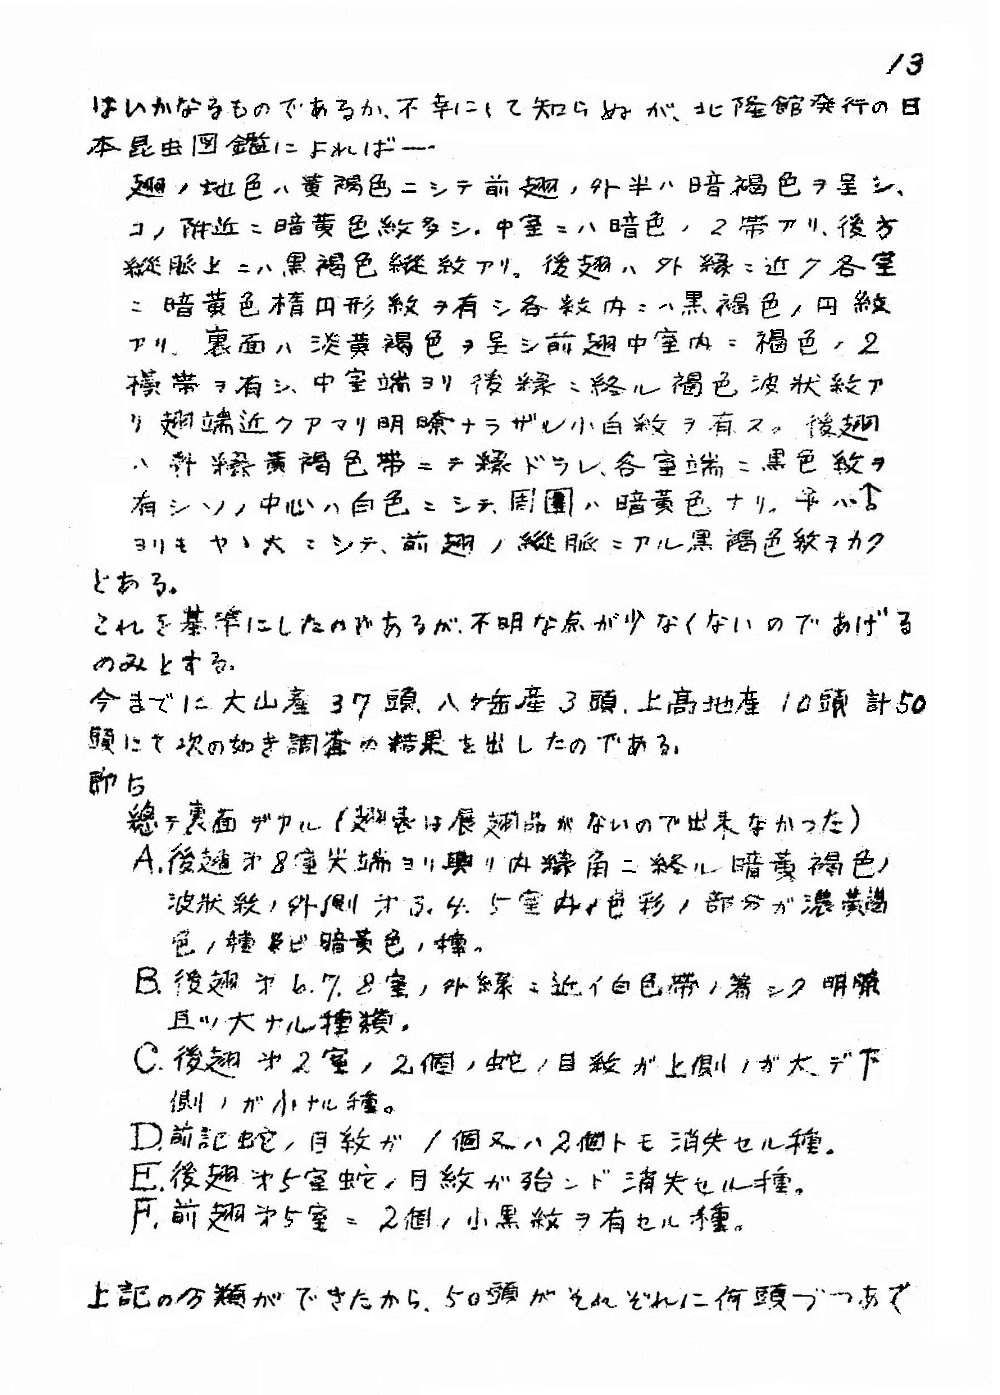 13
はいかなるものであるか、不幸にして知らぬが、北隆館発行の日
本昆虫図鑑によれば―
翅ノ地色ハ黄褐色ニシテ前翅ノ外半ハ暗褐色ヲ呈シ、
コノ附近ニ暗黄色紋多シ。中室ニハ暗色ノ2帯アリ、後方
縦脈上ニハ黒褐色縦紋アリ。後翅ハ外縁ニ近ク各室
ニ暗黄色楕円形紋ヲ有シ各紋内ニハ黒褐色ノ円紋
アリ、裏面ハ淡黄褐色ヲ呈シ前翅中室内ニ褐色ノ2
横帯ヲ有シ、中室端ヨリ後縁ニ終ル褐色波状紋ア
リ翅端近クアマリ明瞭ナラザル小白紋ヲ有ス。後翅
ハ外縁黄褐色帯ニテ縁ドラレ、各室端ニ黒色紋ヲ
有シソノ中心ハ白色ニシテ、周囲ハ暗黄色ナリ。♀ハ♂
ヨリモヤヽ大ニシテ、前翅ノ縦脈ニアル黒褐色紋ヲカク
とある。
これを基準にしたのであるが、不明な点が少なくないのであげる
のみとする。
今までに大山産37頭、八ヶ岳産3頭、上高地産10頭計50
頭にて次の如き調査の結果を出したのである。
即ち
総テ裏面デアル(翅表は展翅品がないので出来なかった)
A.後翅才8室尖端ヨリ興リ内縁角ニ終ル暗黄褐色ノ
波状紋ノ外側才3.4.5室内ノ色彩ノ部分が濃黄褐
色ノ種及ビ暗黄色ノ種。
B.後翅才6.7.8室ノ外縁ニ近イ白色帯ノ著シク明瞭
且ツ大ナル種類。
C.後翅才2室ノ2個ノ蛇ノ目紋が上側ノが大、デ下
側ノが小ナル種。
D.前記蛇ノ目紋ガ1個又ハ2個トモ消失セル種。
E.後翅才5室蛇ノ目紋が殆ンド消失セル種。
F.前翅才5室ニ2個ノ小黒紋ヲ有セル種。
上記の分類ができたから、50頭がそれぞれに何頭づつあて